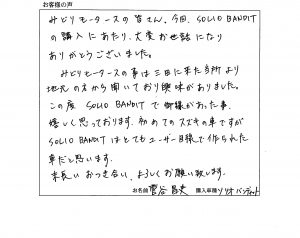 お客様の声
みどりモータースの皆さん、今回、SOLIO BANDIT
の購入にあたり、大変お世話になり
ありがとうございました。
みどりモータースの事は三日に来た当所より
地元の方から聞いており興味がありました。
この度 SOLIO BANDITで御縁があった事、
嬉しく思っております。初めてのスズキの車ですが
SOLIO BANDITはとてもユーザー目線で作られた
車だと思います。
末長いおつき合い、よろしくお願い致します。
お名前 菅谷 昌史 購入車種 ソリオバンディット